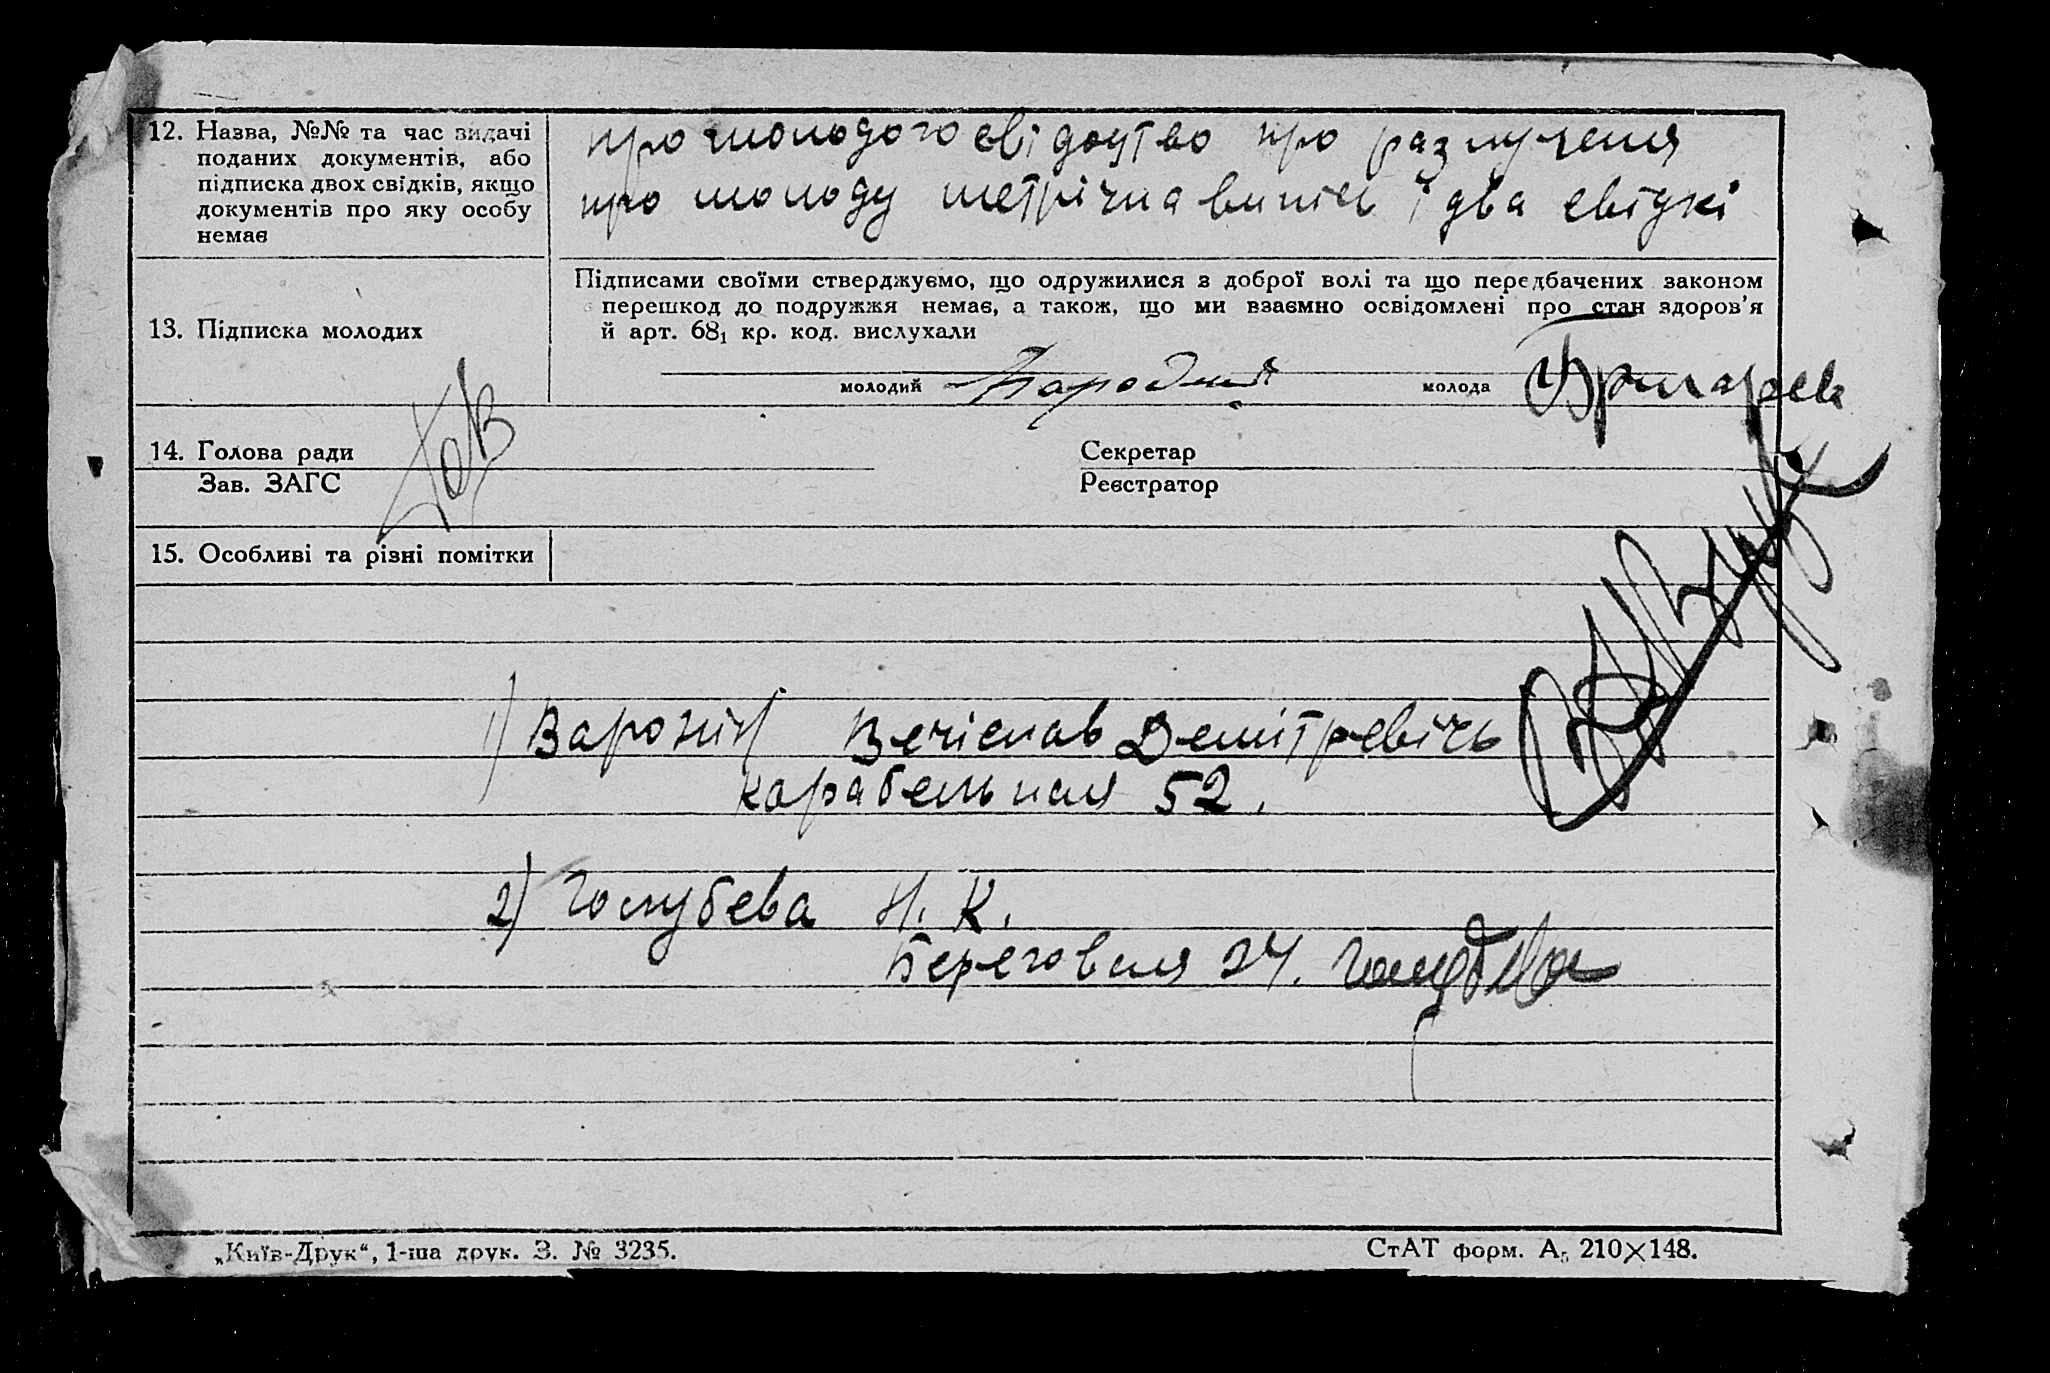 12. Назва, №№ та час видачі
поданих документів, або
підписка двох свідків, якщо
документів про яку особу
немає
про молодого свідоцтво про разлученя
про молоду метрічна випісь і два свідкі
13. Підписка молодих
Підписами своїми стверджуємо, що одружилися з доброї волі та що передбачених законом
перешкод до подружжя немає, а також, що ми взаємно освідомлені про стан здоров'я
й арт. 68₁ кр. код. вислухали
молодий
молода
14. Голова ради
Секретар
Зав. ЗАГС
Реєстратор
15. Особливі та різні помітки
1) Варонін Вечіслав Демітревічь
Карабельная 52.
2) Голубева Н. К.
Береговая 24. Голубева
„Київ-Друк“, 1-ша друк. З. № 3235.
СтАТ форм. А₅ 210×148.